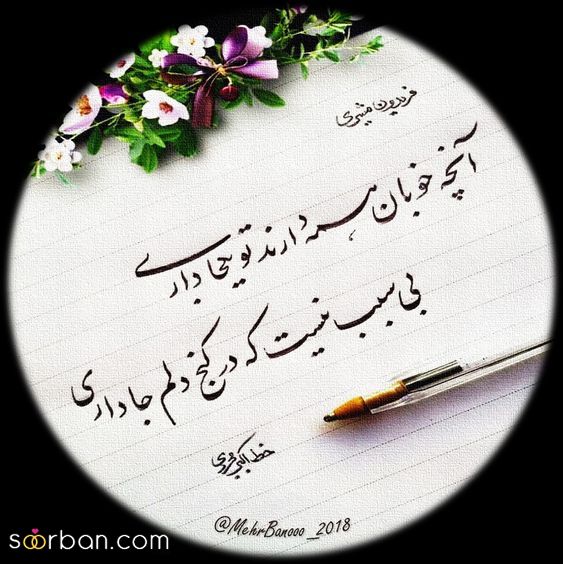 فریدون مشیری
آنچه خوبان همه دارند تو یکجا داری
بی سبب نیست که در کنج دلم جا داری
خط اکبر
@MehrBanooo_2018
soorban.com